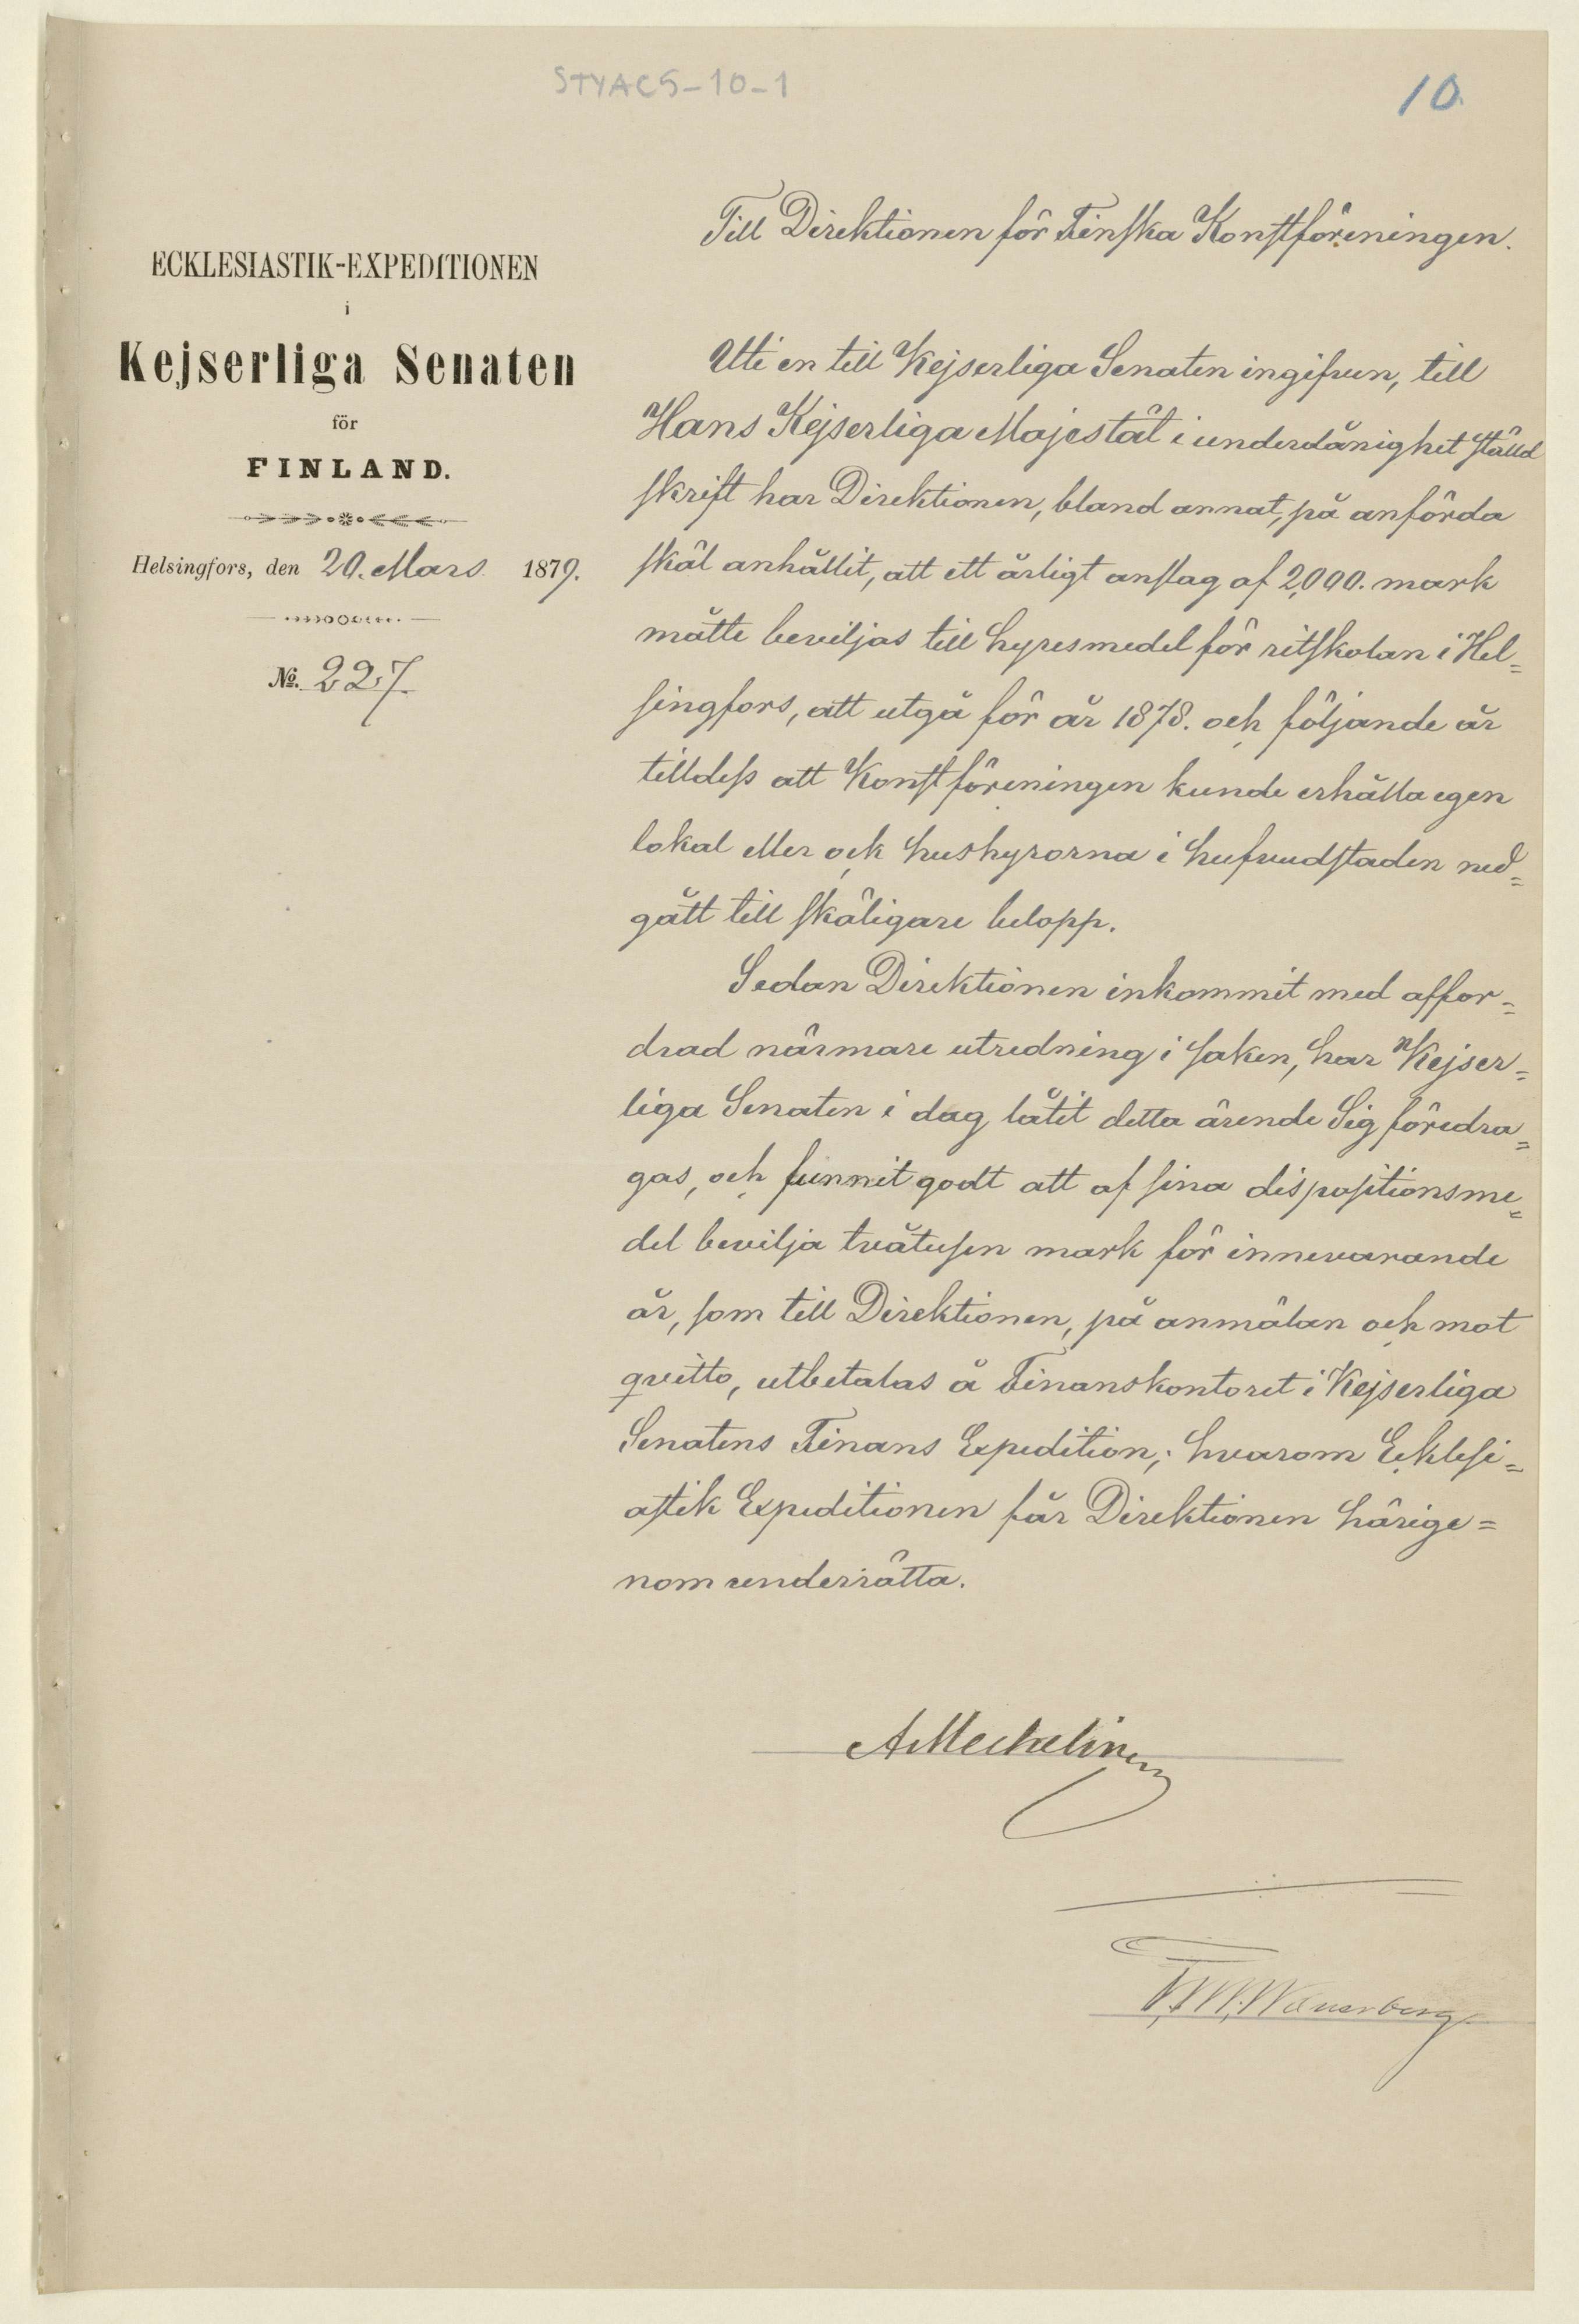 STYACS-10-1
10.
ECKLESIASTIK-EXPEDITIONEN
i
Kejserliga Senaten
för
FINLAND.
Helsingfors, den 20. Mars 1879.
No. 227.
Till Direktionen för Finska Konstföreningen.
Uti en till Kejserliga Senaten ingifven, till
Hans Kejserliga Majestät i underdånighet ställd
skrift har Direktionen, bland annat, på anförda
skäl anhållit, att ett årligt anslag af 2,000. mark
måtte beviljas till hyresmedel för ritskolan i Hel=
singfors, att utgå för år 1878. och följande år
tilldess att Konstföreningen kunde erhålla egen
lokal eller ock hushyrorna i hufvudstaden ned=
gått till skäligare belopp.
Sedan Direktionen inkommit med affor=
drad närmare utredning i saken, har Kejser=
liga Senaten i dag låtit detta ärende Sig föredra=
gas, och funnit godt att af sina dispositionsme=
del bevilja tvåtusen mark för innevarande
år, som till Direktionen, på anmälan och mot
qvitto, utbetalas å Finanskontoret i Kejserliga
Senatens Finans Expedition; hvarom Ecklesi=
astik Expeditionen får Direktionen härige=
nom underrätta.
A Mechelin